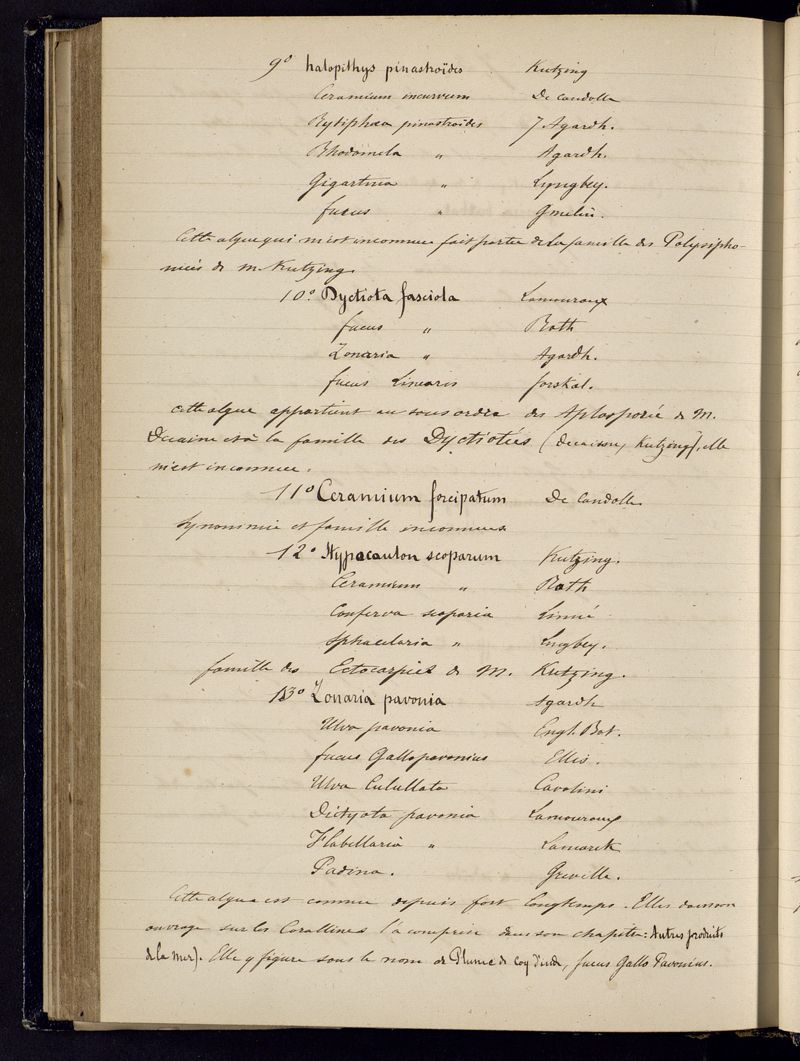 9° halopithys pinastroïdes Kutzing
Ceramium incurvum De candolle
Rytiphæa pinastroïdes J Agardh.
Rhodomela " Agardh.
Gigartina " Lyngbey.
fucus " Gmelin.
Cette algue qui m'est inconnue fait partie de la famille des Polysipho-
niées de M. Kutzing.
10° Dyctiota fasciola Lamouroux
fucus " Roth
Zonaria " Agardh.
fucus Linearis forskal.
Cette algue appartient au sous ordre des Aplosporée de M.
Decaine et à la famille des Dyctiotées (Decaisne, Kutzing), elle
m'est inconnue.
11° Ceramium forcipatum De Candolle
Synonimie et famille inconnues
12° Hypacaulon scoparum Kutzing.
Ceramium " Roth
Conferva scoparia Linné
Sphacelaria " Lingbey.
famille des Ectocarpées de M. Kutzing.
13° Zonaria pavonia Agardh
Ulva pavonia Engl. Bot.
fucus Gallopavonius Ellis.
Ulva Cucullata Cavolini
Dictyota pavonia Lamouroux
Flabellaria " Lamarck
Padina. Greville.
Cette algue est connue depuis fort longtemps. Ellis dans son
ouvrage sur les Corallines l'a comprise dans son chapitre: Autres produits
de la mer). Elle y figure sous le nom de Plume de Coq d'inde, fucus Gallo Pavonius.